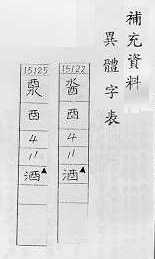 補充資料
異體字表
15122
酉
4
11
酒
15125
酉
4
11
酒